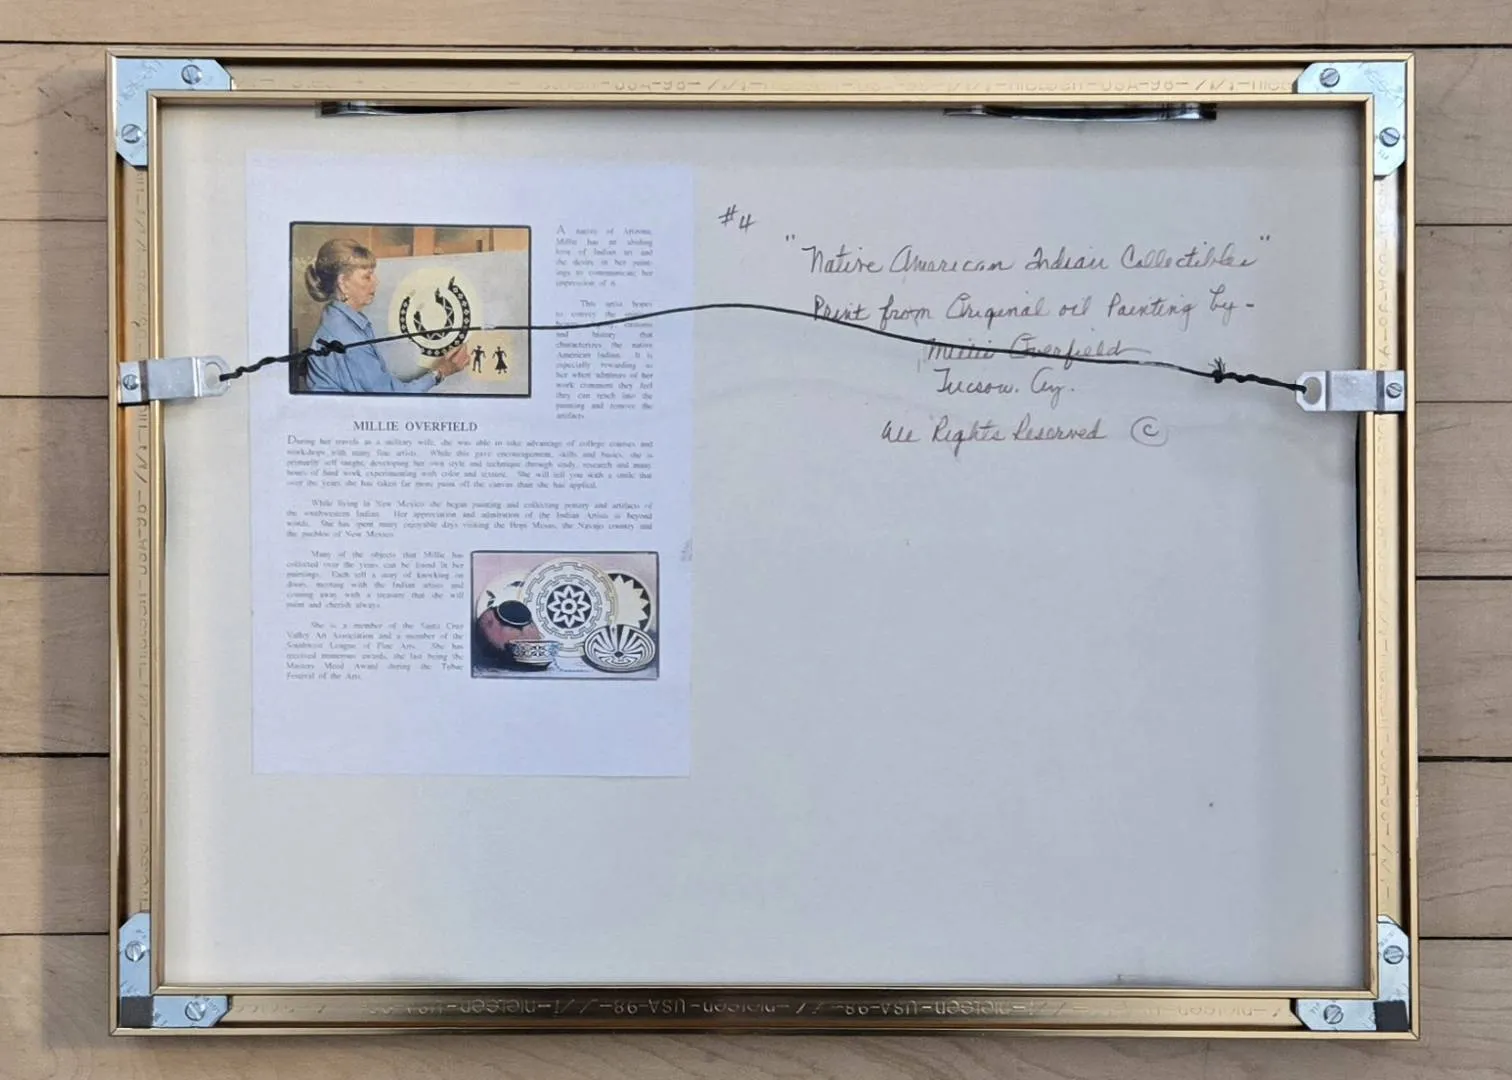 A native of Arizona,
Millie has an abiding
love of Indian art and
she desires in her paint-
ings to communicate her
impression of it.
This artist hopes
to convey the
customs
and history that
characterizes the native
American Indian. It is
especially rewarding to
her when admirers of her
work comment they feel
they can reach into the
painting and remove the
artifacts.
MILLIE OVERFIELD
During her travels as a military wife, she was able to take advantage of college courses and
workshops with many fine artists. While this gave encouragement, skills and basics, she is
primarily self taught, developing her own style and technique through study, research and many
hours of hard work experimenting with color and texture. She will tell you with a smile that
over the years she has taken far more paint off the canvas than she has applied.
While living in New Mexico she began painting and collecting pottery and artifacts of
the southwestern Indian. Her appreciation and admiration of the Indian Artists is beyond
words. She has spent many enjoyable days visiting the Hopi Mesas, the Navajo country and
the pueblos of New Mexico.
Many of the objects that Millie has
collected over the years can be found in her
paintings. Each tell a story of knocking on
doors, meeting with the Indian artists and
coming away with a treasure that she will
paint and cherish always.
She is a member of the Santa Cruz
Valley Art Association and a member of the
Southwest League of Fine Arts. She has
received numerous awards, the last being the
Masters Mead Award during the Tubac
Festival of the Arts.
#4
"Native American Indian Collectibles"
Print from Original oil Painting by-
Millie Overfield
Tucson. Az.
All Rights Reserved ©
nielsen-USA-98-